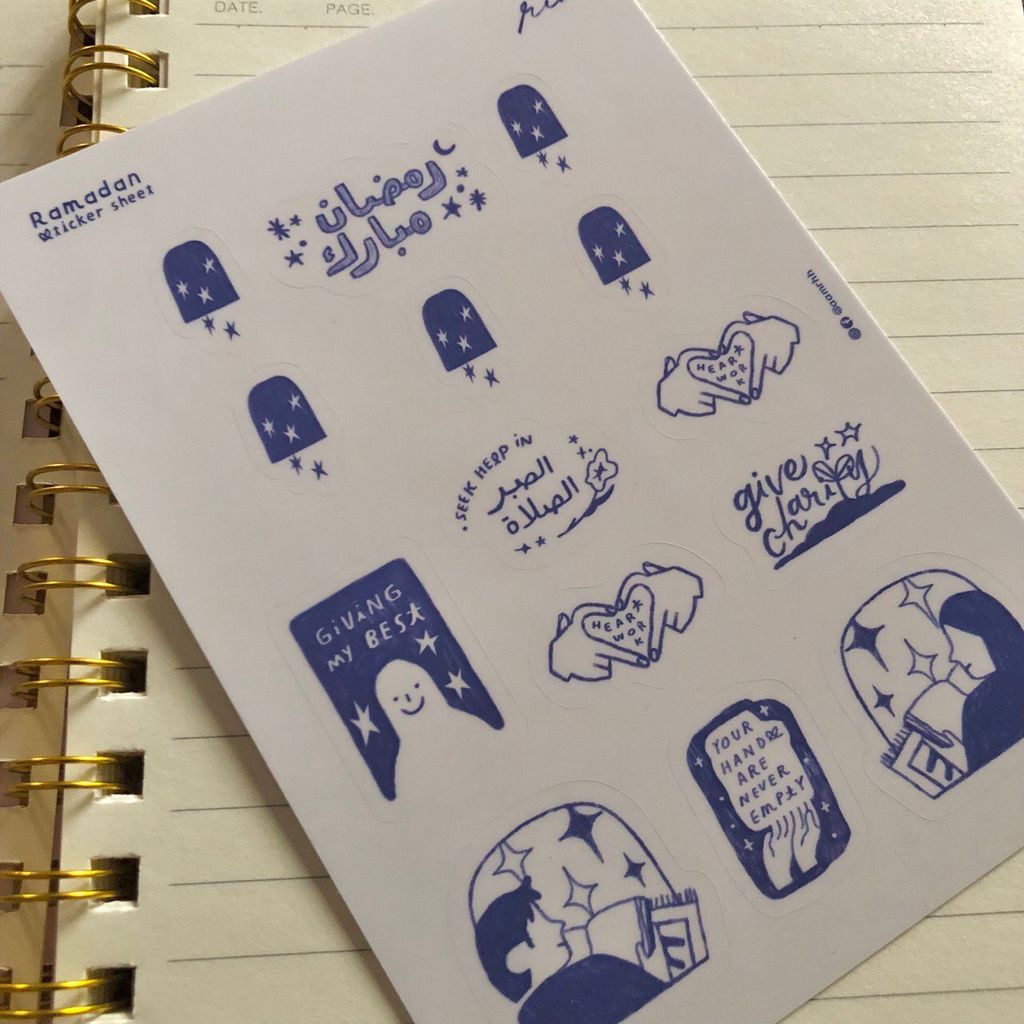 DATE.
PAGE.
Ramadan
Sticker sheet
رمضان
مبارك
@aamrhh
HEART
WORK
SEEK HELP IN
الصبر
الصلاة
give
charity
GIVING
MY BEST
HEART
WORK
YOUR
HANDS
ARE
NEVER
EMPTY